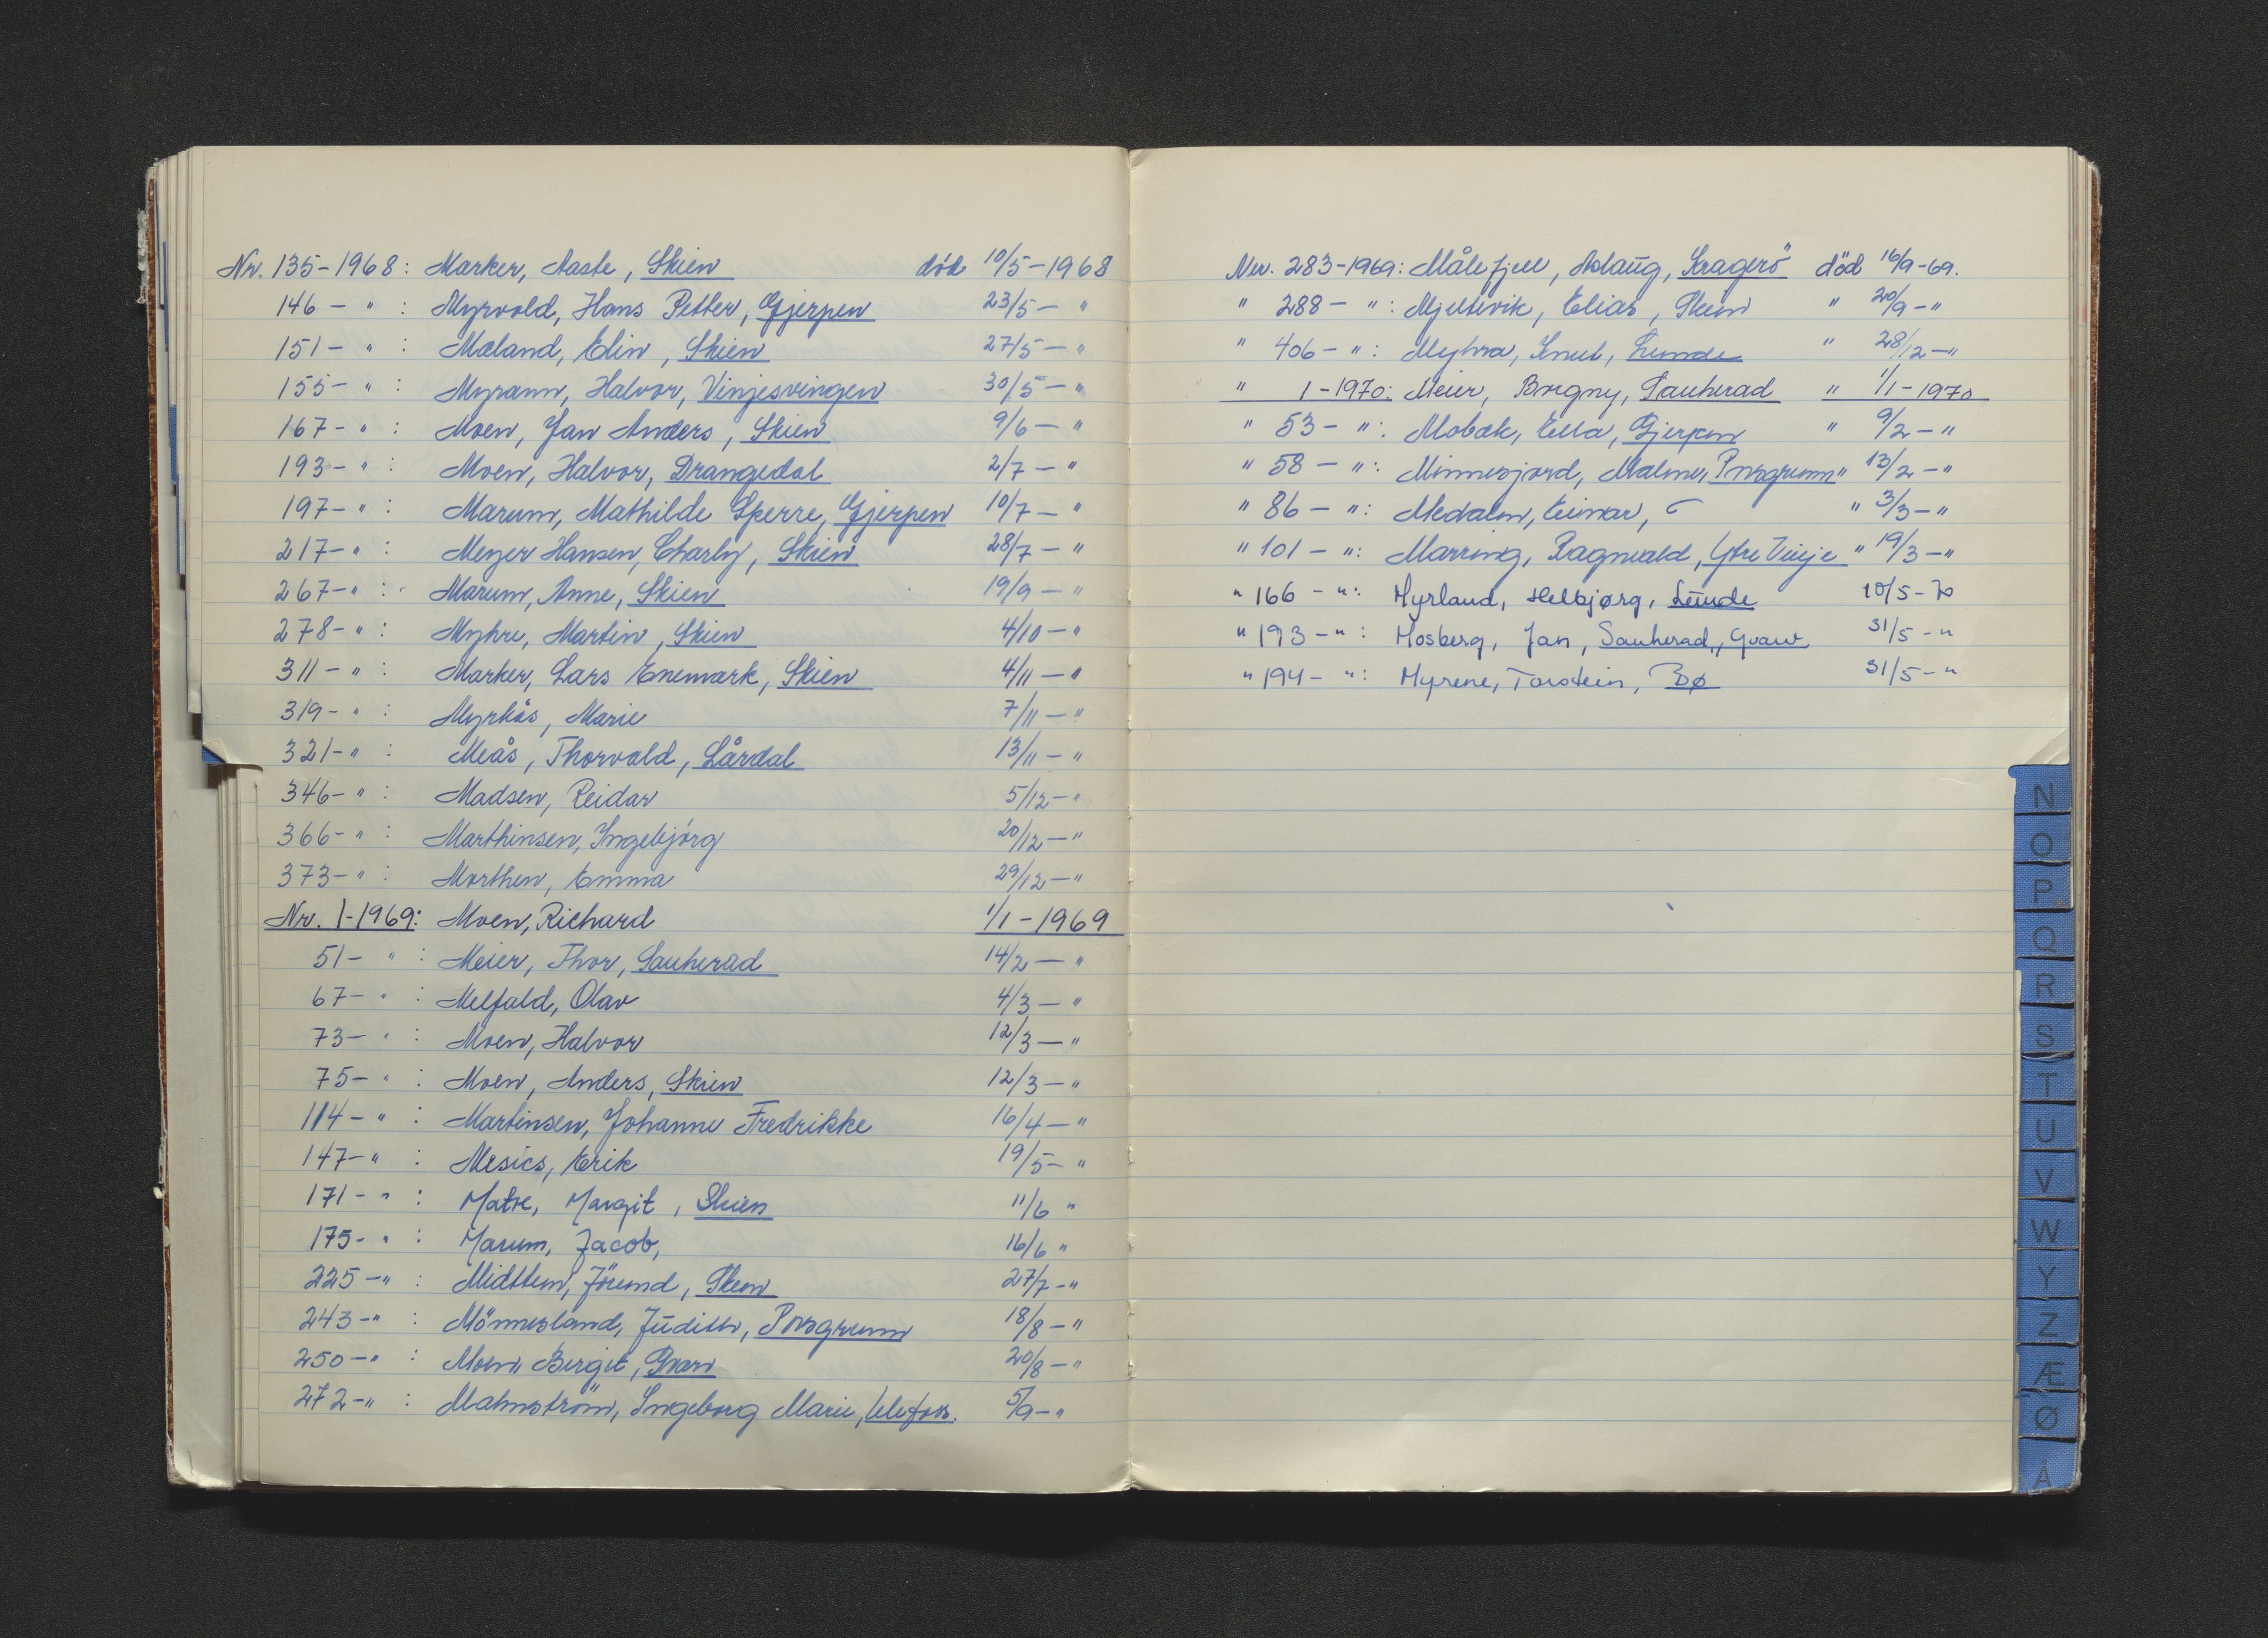 Nr. 135-1968: Marker, Aaste, Skien død 10/5-1968
146- " : Myrvold, Hans Petter, Gjerpen 23/5- "
151- " : Mæland, Elin, Skien 27/5- "
155- " : Myrann, Halvor, Vinjesvingen 30/5- "
167- " : Moen, Jan Anders, Skien 9/6- "
193- " : Moen, Halvor, Drangedal 2/7- "
197- " : Marum, Mathilde Sperre, Gjerpen 10/7- "
217- " : Meyer Hansen, Charly, Skien 28/7- "
267- " : Marum, Anne, Skien 19/9- "
278- " : Myhre, Martin, Skien 4/10- "
311- " : Marker, Lars Enemark, Skien 4/11- "
319- " : Myrhås, Marie 7/11- "
321- " : Meås, Thorvald, Lårdal 13/11- "
346- " : Madsen, Reidar 5/12- "
366- " : Marthinsen, Ingebjörg 20/12- "
373- " : Morthen, Emma 29/12- "
Nr. 1-1969: Moen, Richard 1/1-1969
51- " : Meier, Thor, Sauherad 14/2- "
67- " : Melfald, Olav 4/3- "
73- " : Moen, Halvor 12/3- "
75- " : Moen, Anders, Skien 12/3- "
114- " : Martinsen, Johanne Fredrikke 16/4- "
147- " : Mesics, Erik 19/5- "
171- " : Matre, Margit, Skien 11/6 "
175- " : Marum, Jacob, 16/6 "
225- " : Midttun, Jörund, Skien 27/7- "
243- " : Mönnesland, Judith, Porsgrunn 18/8- "
250- " : Moen, Birgit, Gvarv 20/8- "
272- " : Malmström, Ingeborg Marie, Ulefoss. 5/9- "
Nr. 283-1969: Målefjell, Aslaug, Kragerö död 16/9-69.
" 288- " : Mjeltevik, Elias, Skien " 20/9- "
" 406- " : Myhra, Knut, Lunde " 28/12- "
" 1-1970: Meier, Borgny, Sauherad " 1/1-1970
" 53- " : Mobæk, Ella, Gjerpen " 9/2- "
" 58- " : Minnesjord, Malmer, Porsgrunn " 13/2- "
" 86- " : Medalen, Einar, " 3/3- "
" 101- " : Marring, Ragnvald, Ytre Vinje " 19/3- "
" 166- " : Myrland, Helbjørg, Lunde 10/5-70
" 193- " : Mosberg, Jan, Sauherad, Gvarv 31/5- "
" 194- " : Myrene, Torstein, Bø 31/5- "
N
O
P
Q
R
S
T
U
V
W
Y
Z
Æ
Ø
Å